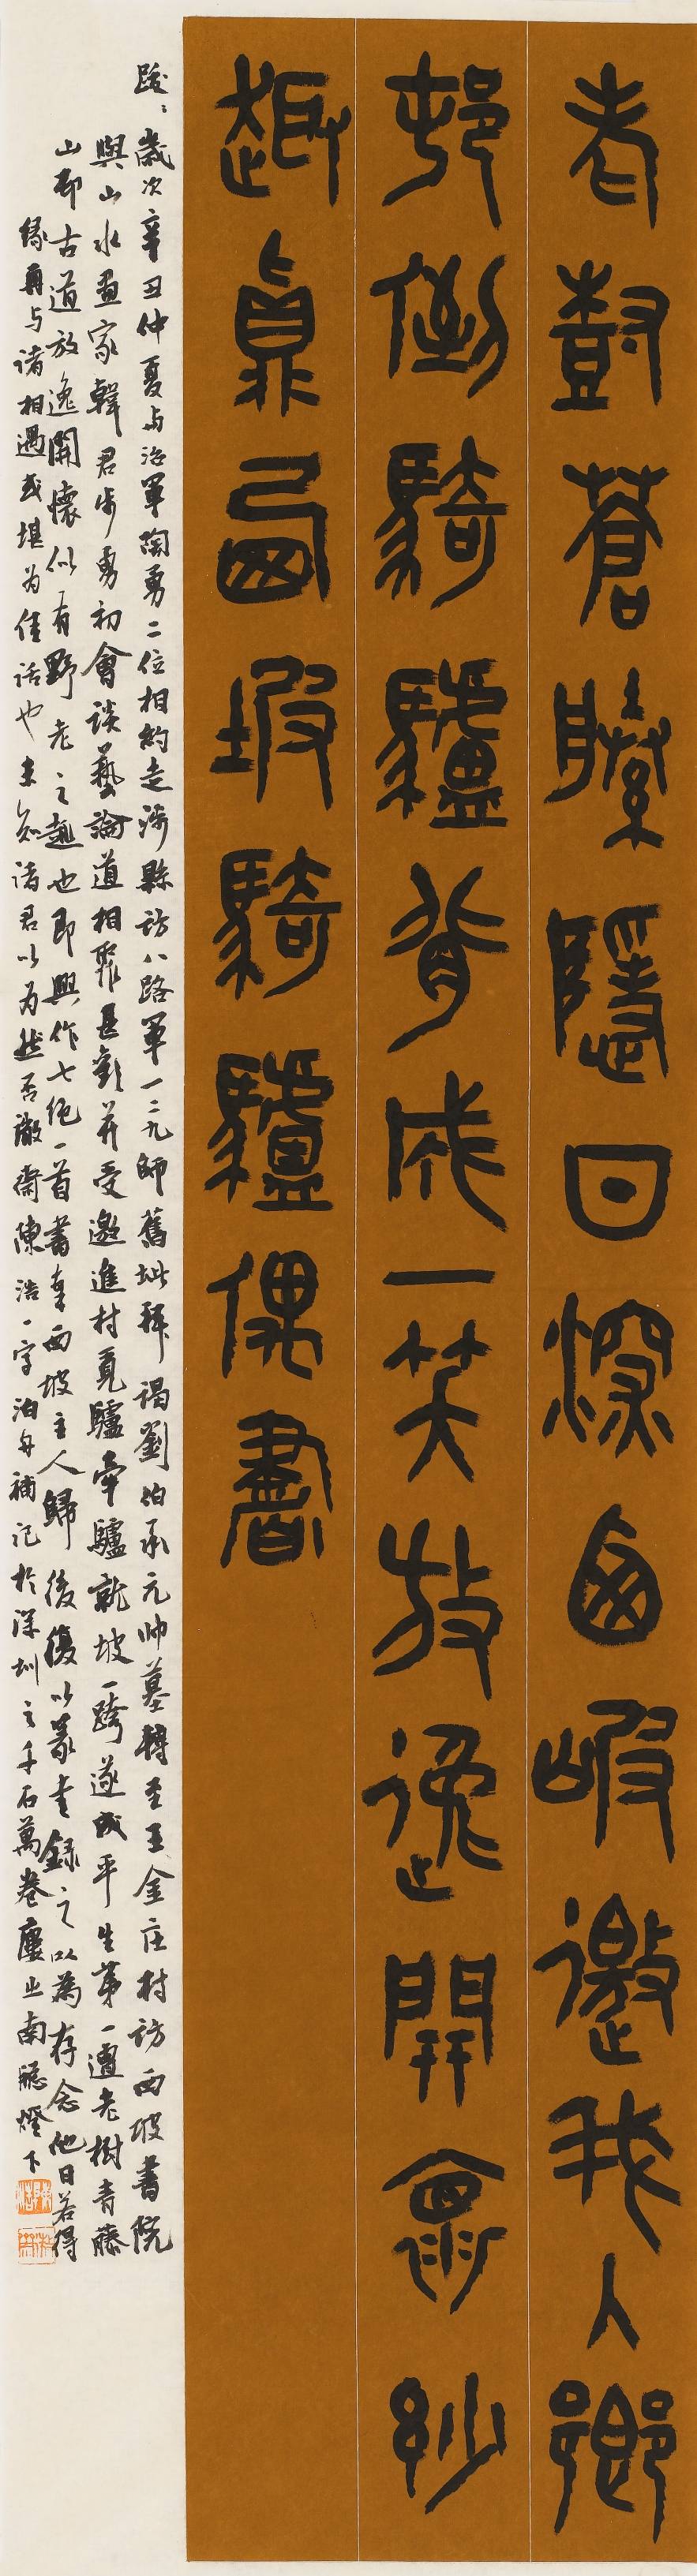 老樹蒼藤隱日㷶西坡邀我入鄉
邨倒騎驢背成一笑放逸開懷紗
趣真西坡騎驢偶書
跋：歲次辛丑仲夏与治軍陶勇二位相約走涉縣訪八路軍一二九師舊址拜謁劉伯承元帥墓轉至王金庄村訪西坡書院
與山水畫家韓君步勇初會談藝論道相聚甚歡并受邀進村覓驢牽驢就坡一跨遂成平生第一遭老樹青藤
山邨古道放逸開懷似有野老之趣也即興作七绝一首書奉西坡主人歸後復以篆书錄之以為存念他日若得
缘再与诸相遇或堪为佳话也未知诸君以为然否澂齋陳浩一字泊舟補记於深圳之千石萬卷廔之南牕燈下